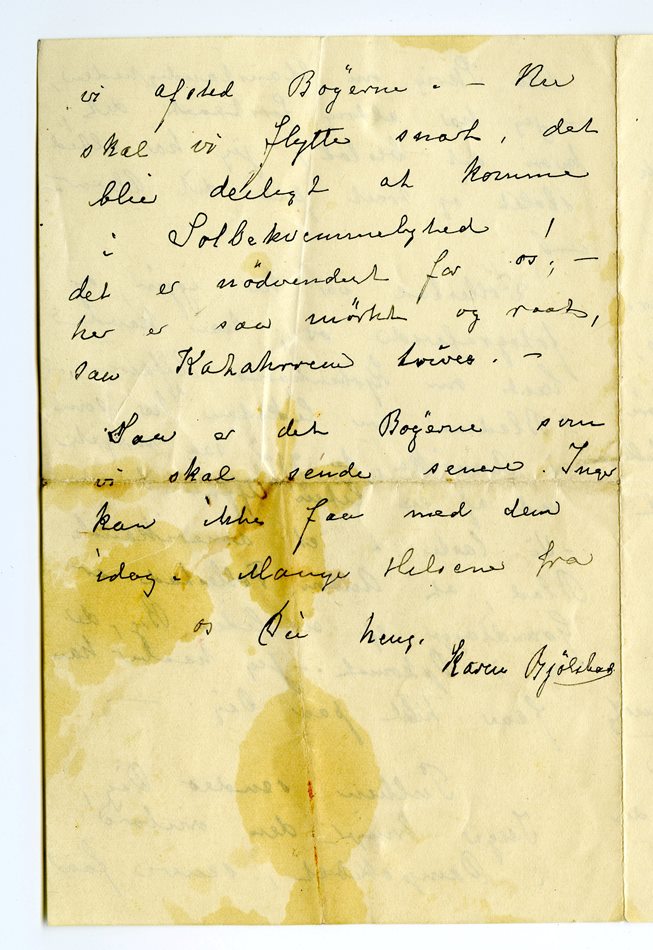 vi afsted Bøgerne. — Nu
skal vi flytte snart, det
blir deiligt at komme
i Solbekvemmelighed!
det er nödvendigt for os, —
her er saa mörkt og raat,
saa Katahrrene trives. —
Saa er det Bøgerne som
vi skal sende senere. Inger
kan ikke faa med dem
idag. Mange Hilsene fra
os Din heng.
Karen